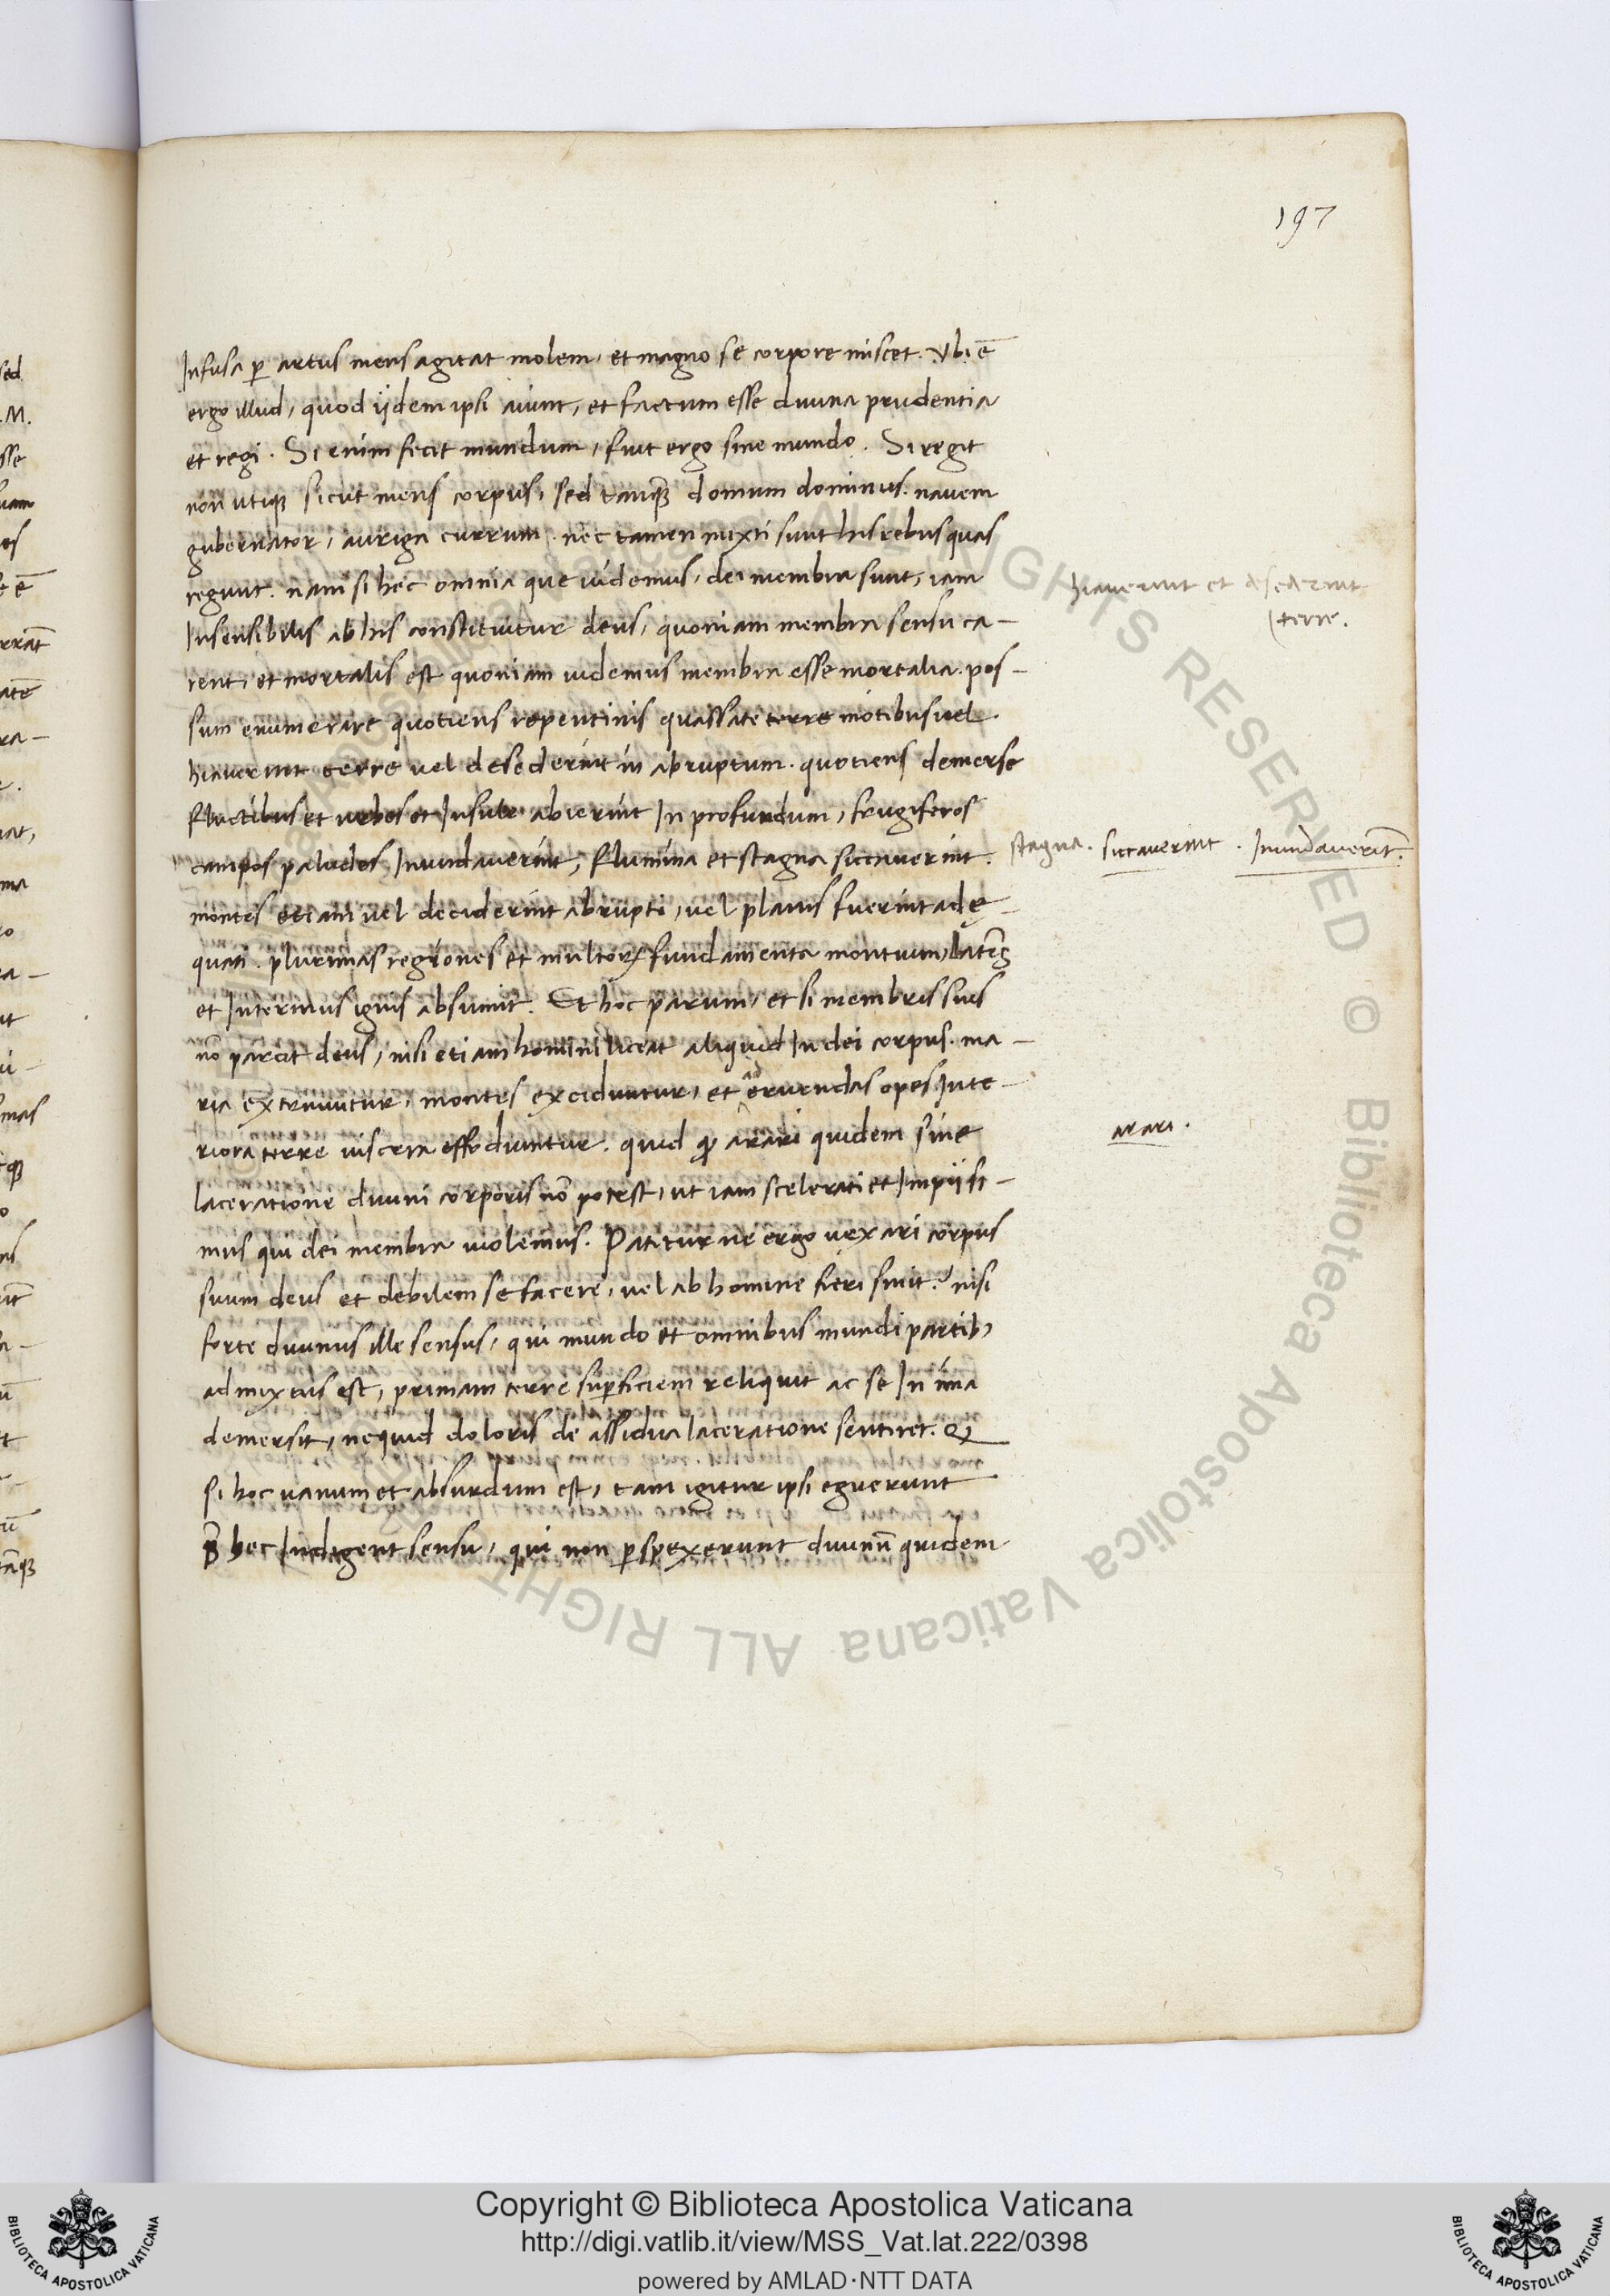 197
Infusa ꝑ artus mens agitat molem, et magno se corpore miscet. Vbi ē
ergo illud, quod ijdem ipsi aiunt, et factum esse diuina prudentia
et regi. Si enim fecit mundum, fuit ergo sine mundo. Si regit
non utiqꝫ sicut mens corpus, sed tanqꝫ domum dominus. nauem
gubernator, auriga currum. nec tamen mixti sunt his rebus quas
regunt. nam si hec omnia que uidemus, dei membra sunt, iam
Insensibilis ab his constituitur deus, quoniam membra sensu ca-
rent, et mortalis est quoniam uidemus membra esse mortalia. pos-
sum enumerare quotiens repentinis quassate terre motibus uel
hiauerint terre uel desederint in abruptum. quotiens demerse
fluctibus et urbes et Insule abierint In profundum, frugiferos
campos paludes Inundauerint, flumina et stagna siccauerint.
montes etiam uel deciderint abrupti, uel planis fuerint adę-
quati. plurimas regiones et multoꝝ fundamenta montium, latēs
et Internus ignis absumit. Et hoc parum, et si membris suis
nō parcit deus, nisi etiam homini liceat aliquid In dei corpus. ma-
ria extruuntur, montes exciduntur, et ^ad eruendas opes Inte-
riora terre uiscera effodiuntur. quid ꝙ arari quidem sine
laceratione diuini corporis nō potest, ut iam scelerati et Impij si-
mus qui dei membra uiolemus. Patitur ne ergo uexari corpus
suum deus et debilem se facere, uel ab homine fieri sinit? nisi
forte diuinus ille sensus, qui mundo et omnibus mundi partib,
admixtus est, primam terre suꝑficiem reliquit ac se In ima
demersit, nequid doloris de assidua laceratione sentiret. Q
si hoc uanum et absurdum est, tam igitur ipsi eguerunt
hec Indigent sensu, qui non ꝑspexerunt diuinū quidem
hiauerint et desederint
terre.
stagna. siccauerint. Inundauerīt.
arari.
Copyright © Biblioteca Apostolica Vaticana
http://digi.vatlib.it/view/MSS_Vat.lat.222/0398
powered by AMLAD·NTT DATA
BIBLIOTECA APOSTOLICA VATICANA
BIBLIOTECA APOSTOLICA VATICANA